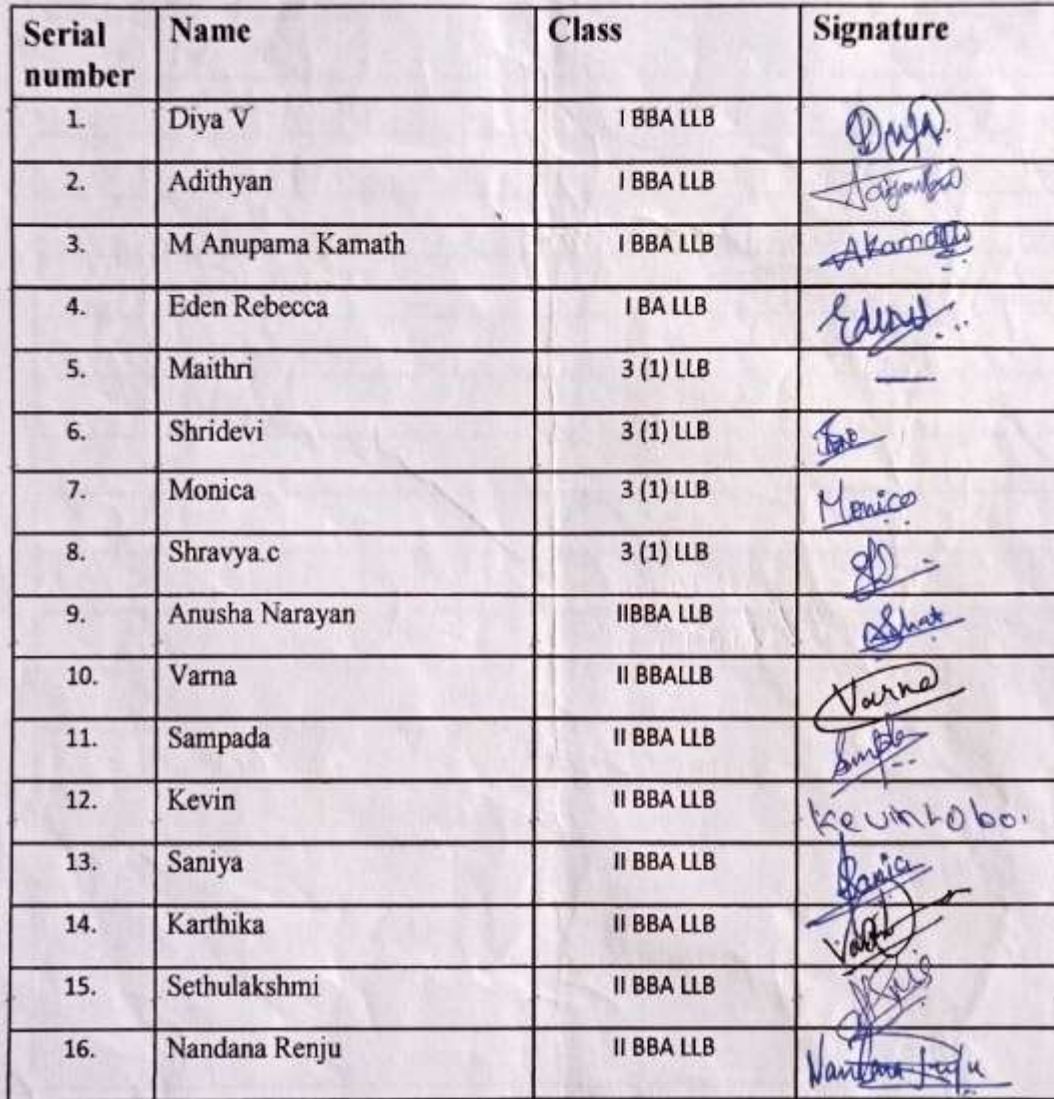 Serial number Name Class Signature
1. Diya V I BBA LLB
2. Adithyan I BBA LLB
3. M Anupama Kamath I BBA LLB Akamath
4. Eden Rebecca I BA LLB
5. Maithri 3 (1) LLB
6. Shridevi 3 (1) LLB
7. Monica 3 (1) LLB Monica
8. Shravya.c 3 (1) LLB
9. Anusha Narayan IIBBA LLB
10. Varna II BBALLB Varna
11. Sampada II BBA LLB
12. Kevin II BBA LLB Kevin Lobo.
13. Saniya II BBA LLB
14. Karthika II BBA LLB
15. Sethulakshmi II BBA LLB
16. Nandana Renju II BBA LLB Nandana